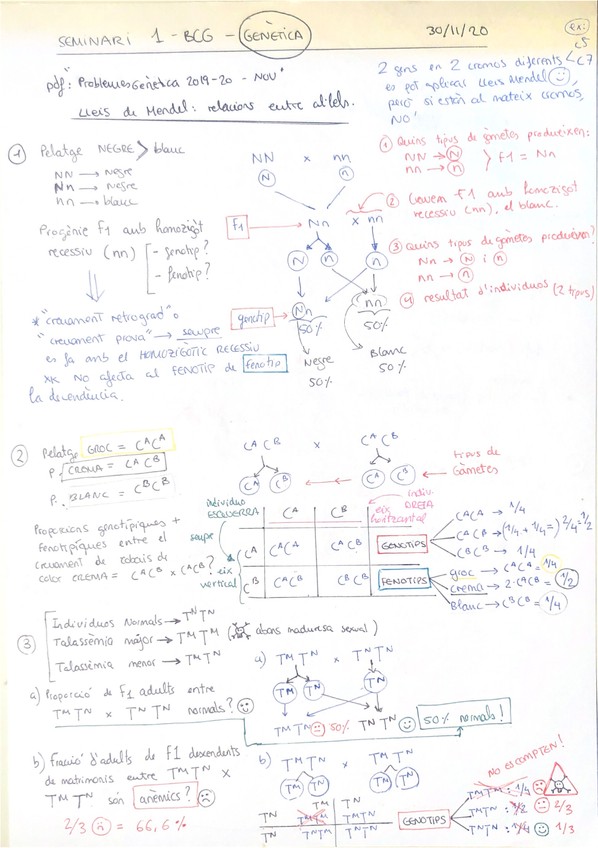 SEMINARI 1 - BCG - GENÈTICA
30/11/20
pdf: "Problemes Genètica 2019-20 - NOU"
LLeis de Mendel: relacions entre al·lels.
2 gens en 2 cromos diferents
es pot aplicar LLeis Mendel
però si estàn al mateix cromos,
NO!
① Pelatge NEGRE > blanc
NN → negre
Nn → negre
nn → blanc
Progènie F1 amb homozigot
recessiu (nn)
- genotip?
- fenotip?
* "creuament retrograd" o
"creuament prova" → sempre
es fa amb el HOMOZIGÒTIC RECESSIU
** NO afecta al FENOTIP de
la descendència.
NN x nn
N n
F1 → Nn x nn
N n n
genotip → Nn nn
50% 50%
fenotip
Negre Blanc
50% 50%
① Quins tipus de gàmetes produeixen:
NN → N
nn → n
F1 = Nn
② Creuem F1 amb homozigot
recessiu (nn), el blanc.
③ Quins tipus de gàmetes produeixen?
Nn → N i n
nn → n
④ resultat d'individuos (2 tipus)
② Pelatge GROC = CᴬCᴬ
P. CREMA = CᴬCᴮ
P. BLANC = CᴮCᴮ
Proporcions genotípiques +
Fenotípiques entre el
creuament de
color CREMA = CᴬCᴮ x CᴬCᴮ?
CᴬCᴮ x CᴬCᴮ
Cᴬ Cᴮ Cᴬ Cᴮ
← tipus de
Gàmetes
individuo
ESQUERRA
sempre
eix
vertical
indiv.
DRETA
eix
horitzontal
Cᴬ Cᴮ
Cᴬ CᴬCᴬ CᴬCᴮ
Cᴮ CᴬCᴮ CᴮCᴮ
GENOTIPS
CᴬCᴬ → 1/4
CᴬCᴮ → (1/4 + 1/4 =) 2/4 = 1/2
CᴮCᴮ → 1/4
FENOTIPS
groc → CᴬCᴬ = 1/4
crema → 2·CᴬCᴮ = 1/2
Blanc → CᴮCᴮ = 1/4
③ Individuos Normals → TᴺTᴺ
Talassèmia major → TᴹTᴹ ( abans maduresa sexual)
Talassèmia menor → TᴹTᴺ
a) Proporció de F1 adults entre
TᴹTᴺ x TᴺTᴺ normals?
a) TᴹTᴺ x TᴺTᴺ
Tᴹ Tᴺ Tᴺ
TᴹTᴺ 50% TᴺTᴺ
50% normals!
b) Fracció d'adults de F1 descendents
de matrimonis entre TᴹTᴺ x
TᴹTᴺ són anèmics?
2/3 = 66,6%
b) TᴹTᴺ x TᴹTᴺ
Tᴹ Tᴺ Tᴹ Tᴺ
TᴹTᴺ
TᴺTᴹ TᴺTᴺ
GENOTIPS
NO es COMPTEN!
TᴹTᴹ: 1/4
TᴹTᴺ: 1/2 2/3
TᴺTᴺ: 1/4 1/3